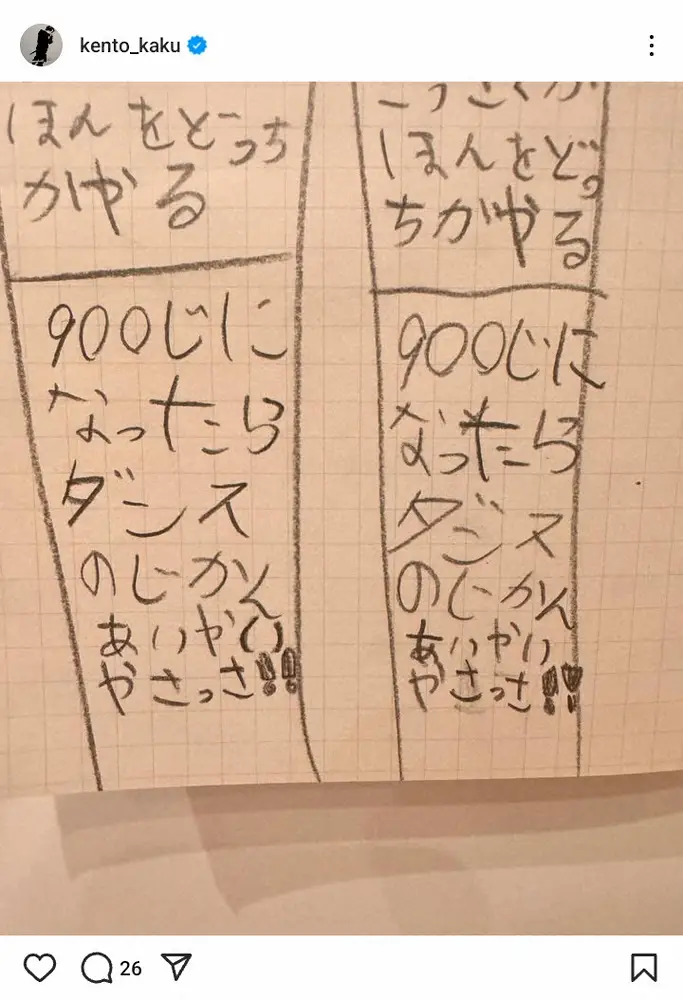 kento_kaku
ほんをどっち
がやる
900じに
なったら
ダンス
のじかん
あいやい
やさっさ!!
ほんをどっ
ちがやる
900じに
なったら
ダンス
のじかん
あいやい
やさっさ!!
26